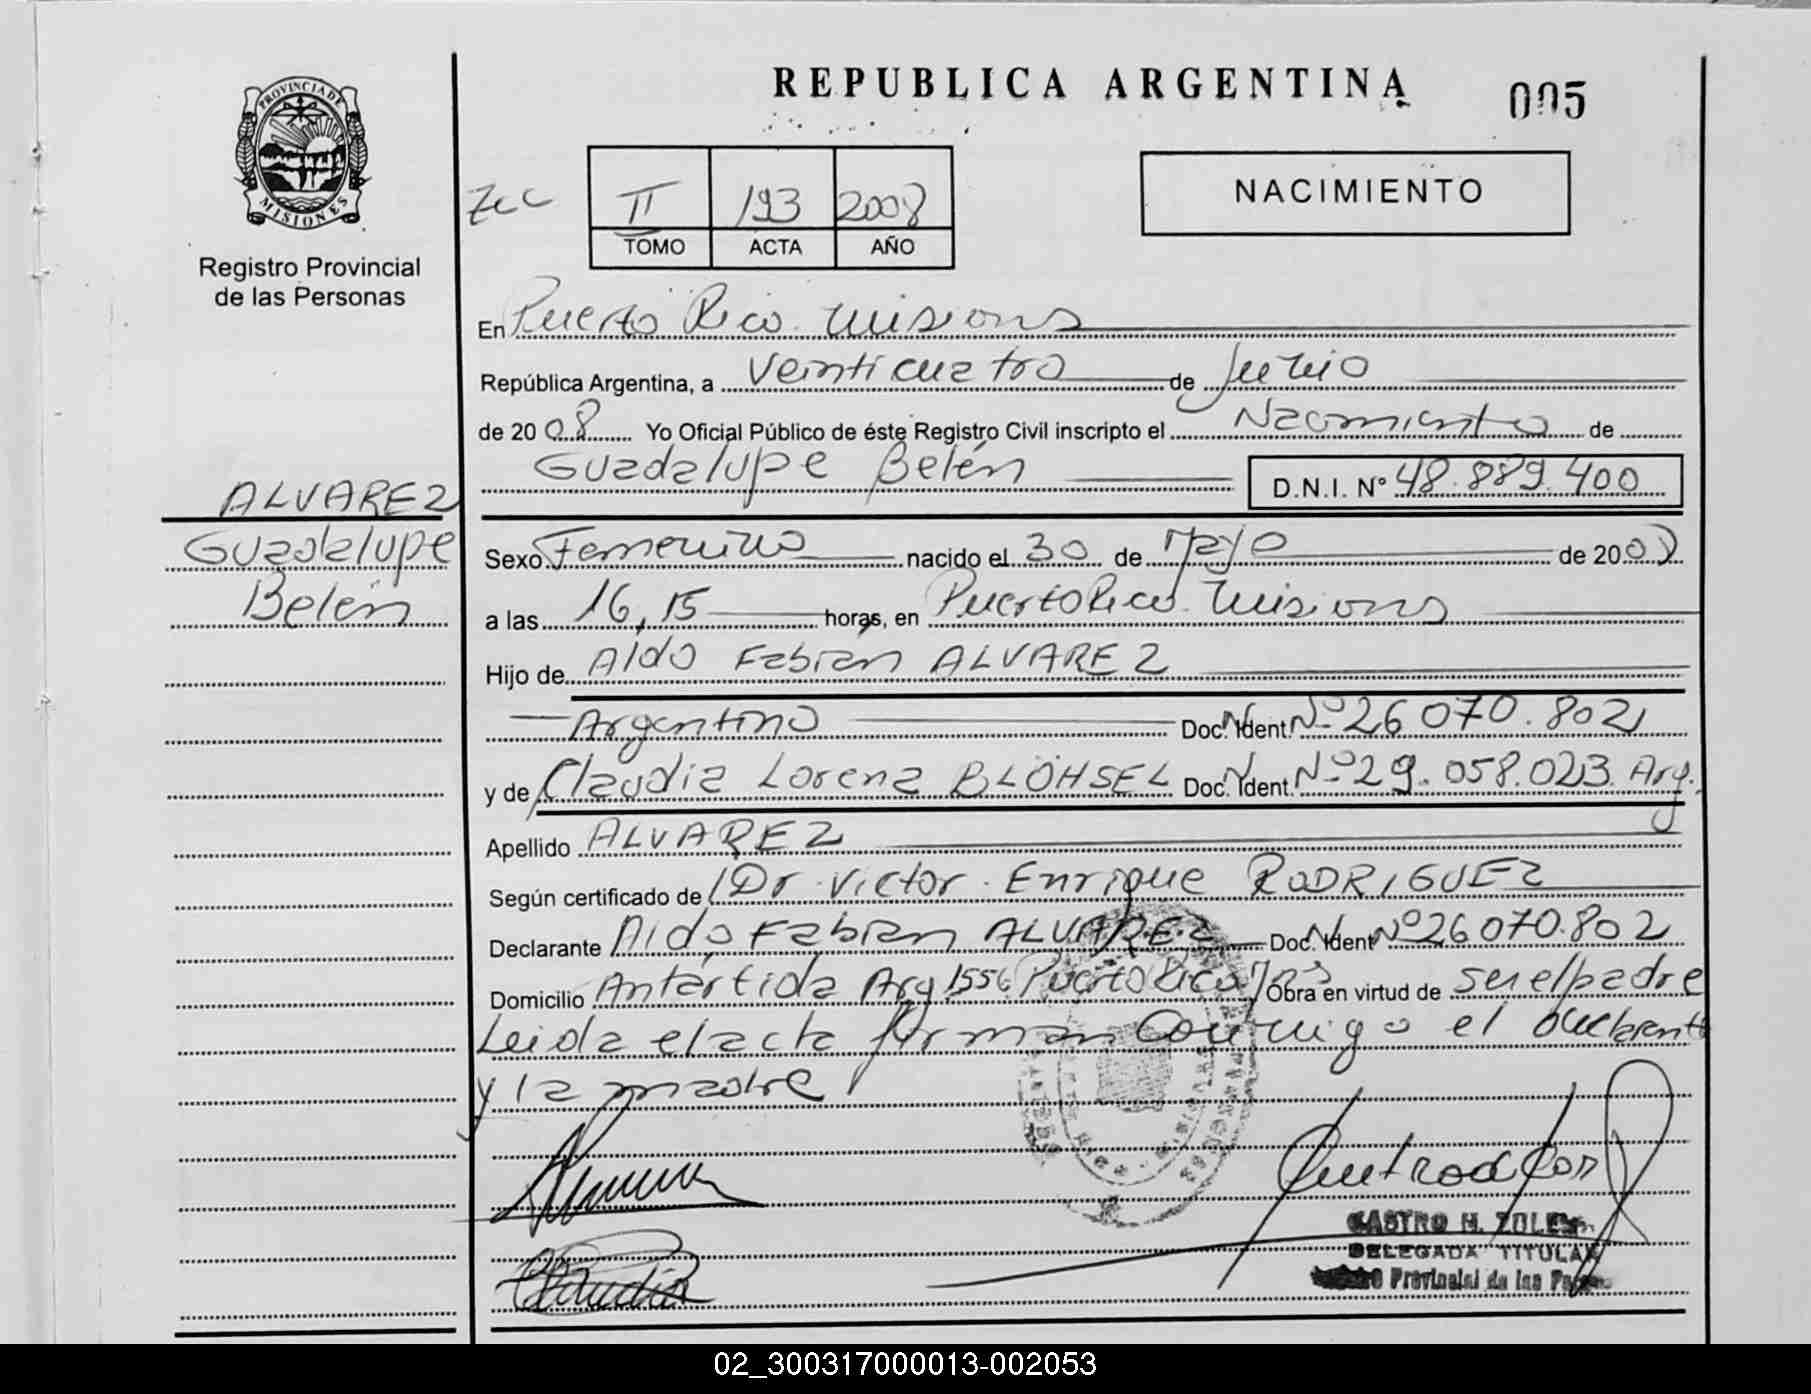 REPUBLICA ARGENTINA
005
PROVINCIA DE
MISIONES
Registro Provincial
de las Personas
II 193 2008
TOMO ACTA AÑO
NACIMIENTO
En Puerto Rico. Misiones
República Argentina, a Veinticuatro de Junio
de 2008 Yo Oficial Público de éste Registro Civil inscripto el Nacimiento de
Guadalupe Belén D.N.I. N° 48.889.400
ALVAREZ
Guadalupe
Belén
Sexo Femenino nacido el 30 de Mayo de 2008
a las 16,15 horas, en Puerto Rico. Misiones
Hijo de Aldo Fabian ALVAREZ
Argentino Doc. Ident. Nº 26.070.802
y de Claudia Lorena BLÖHSEL Doc. Ident. Nº 29.058.023. Arg.
Apellido ALVAREZ
Según certificado de Dr. Victor. Enrique RODRIGUEZ
Declarante Aldo Fabian ALVAREZ Doc. Ident Nº 26070.802
Domicilio Antártida Arg. 1556 Puerto Rico Mns Obra en virtud de ser el padre
Leida el acta firman conmigo el declarante
y la madre
Claudia
CASTRO H. ZULEM
DELEGADA TITULAR
Provincial de las
02_300317000013-002053